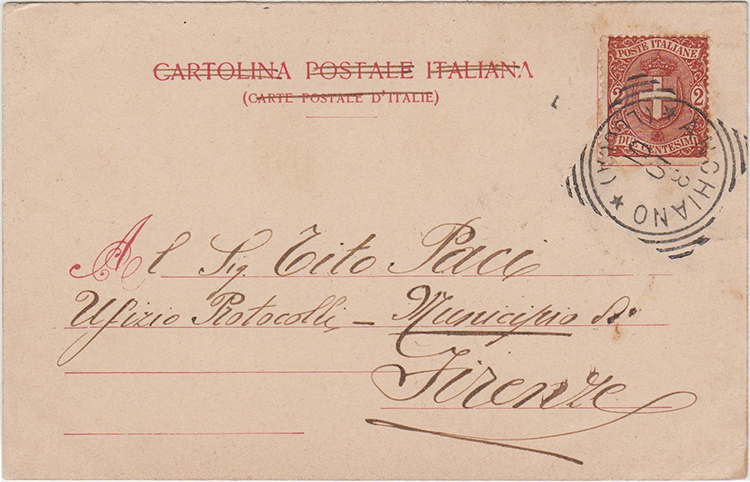 CARTOLINA POSTALE ITALIANA
(CARTE POSTALE D'ITALIE)
POSTE ITALIANE
2 2
DUE CENTESIMI
ANCHIANO
(LUCCA)
Al Sig Tito Paci
Ufizio Protocolli – Municipio di
Firenze